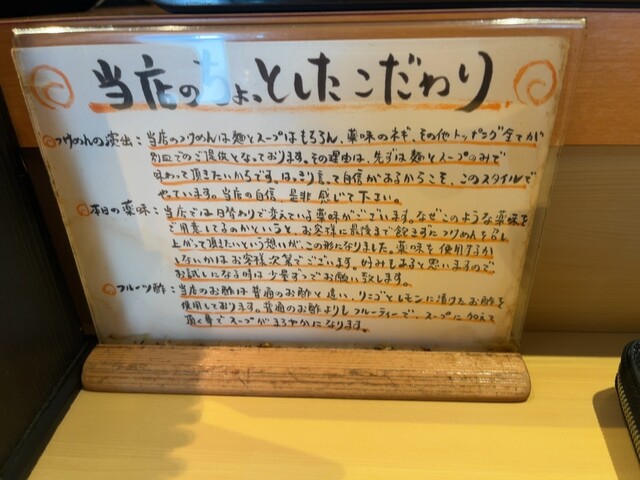 当店のちょっとしたこだわり
つけめんの演出：当店のつけめんは麺とスープはもちろん、薬味のネギ、その他トッピング全てが
別皿でのご提供となっております。その理由は、先ずは麺とスープのみで
味わって頂きたいからです。はっきり言って自信があるからこそ、このスタイルで
やっています。当店の自信、是非 感じて下さい。
本日の薬味：当店では日替わりで変えている薬味がございます。なぜこのような薬味を
ご用意してるのかというと、お客様に最後まで飽きずにつけめんを召し
上がって頂きたいという想いが、この形になりました。薬味を使用するか
しないかはお客様次第でございます。好みもあると思いますので
お試しになる時は少量ずつでお願い致します。
フルーツ酢：当店のお酢は普通のお酢と違い、リンゴとレモンに漬けたお酢を
使用しております。普通のお酢よりもフルーティーで、スープに加えて
頂く事でスープがまろやかになります。